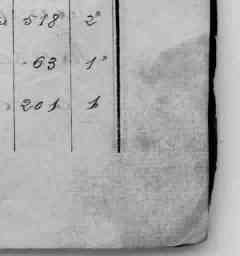 518 2º
63 1º
201 1